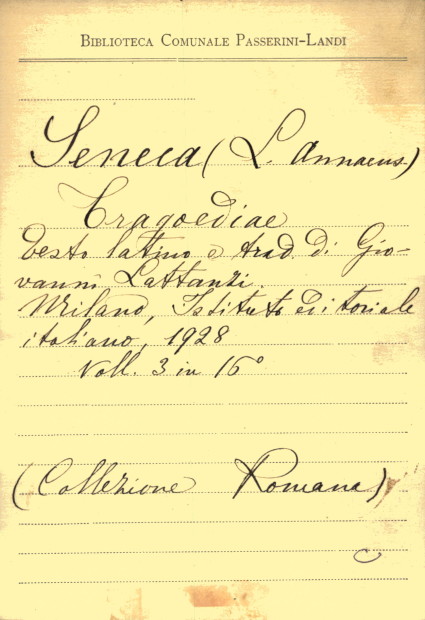 BIBLIOTECA COMUNALE PASSERINI-LANDI
Seneca (L. Annaeus)
Tragoediae
testo latino e trad. di Gio-
vanni Lattanzi.
Milano, Istituto editoriale
italiano, 1928
Voll. 3 in 16°
(Collezione Romana)